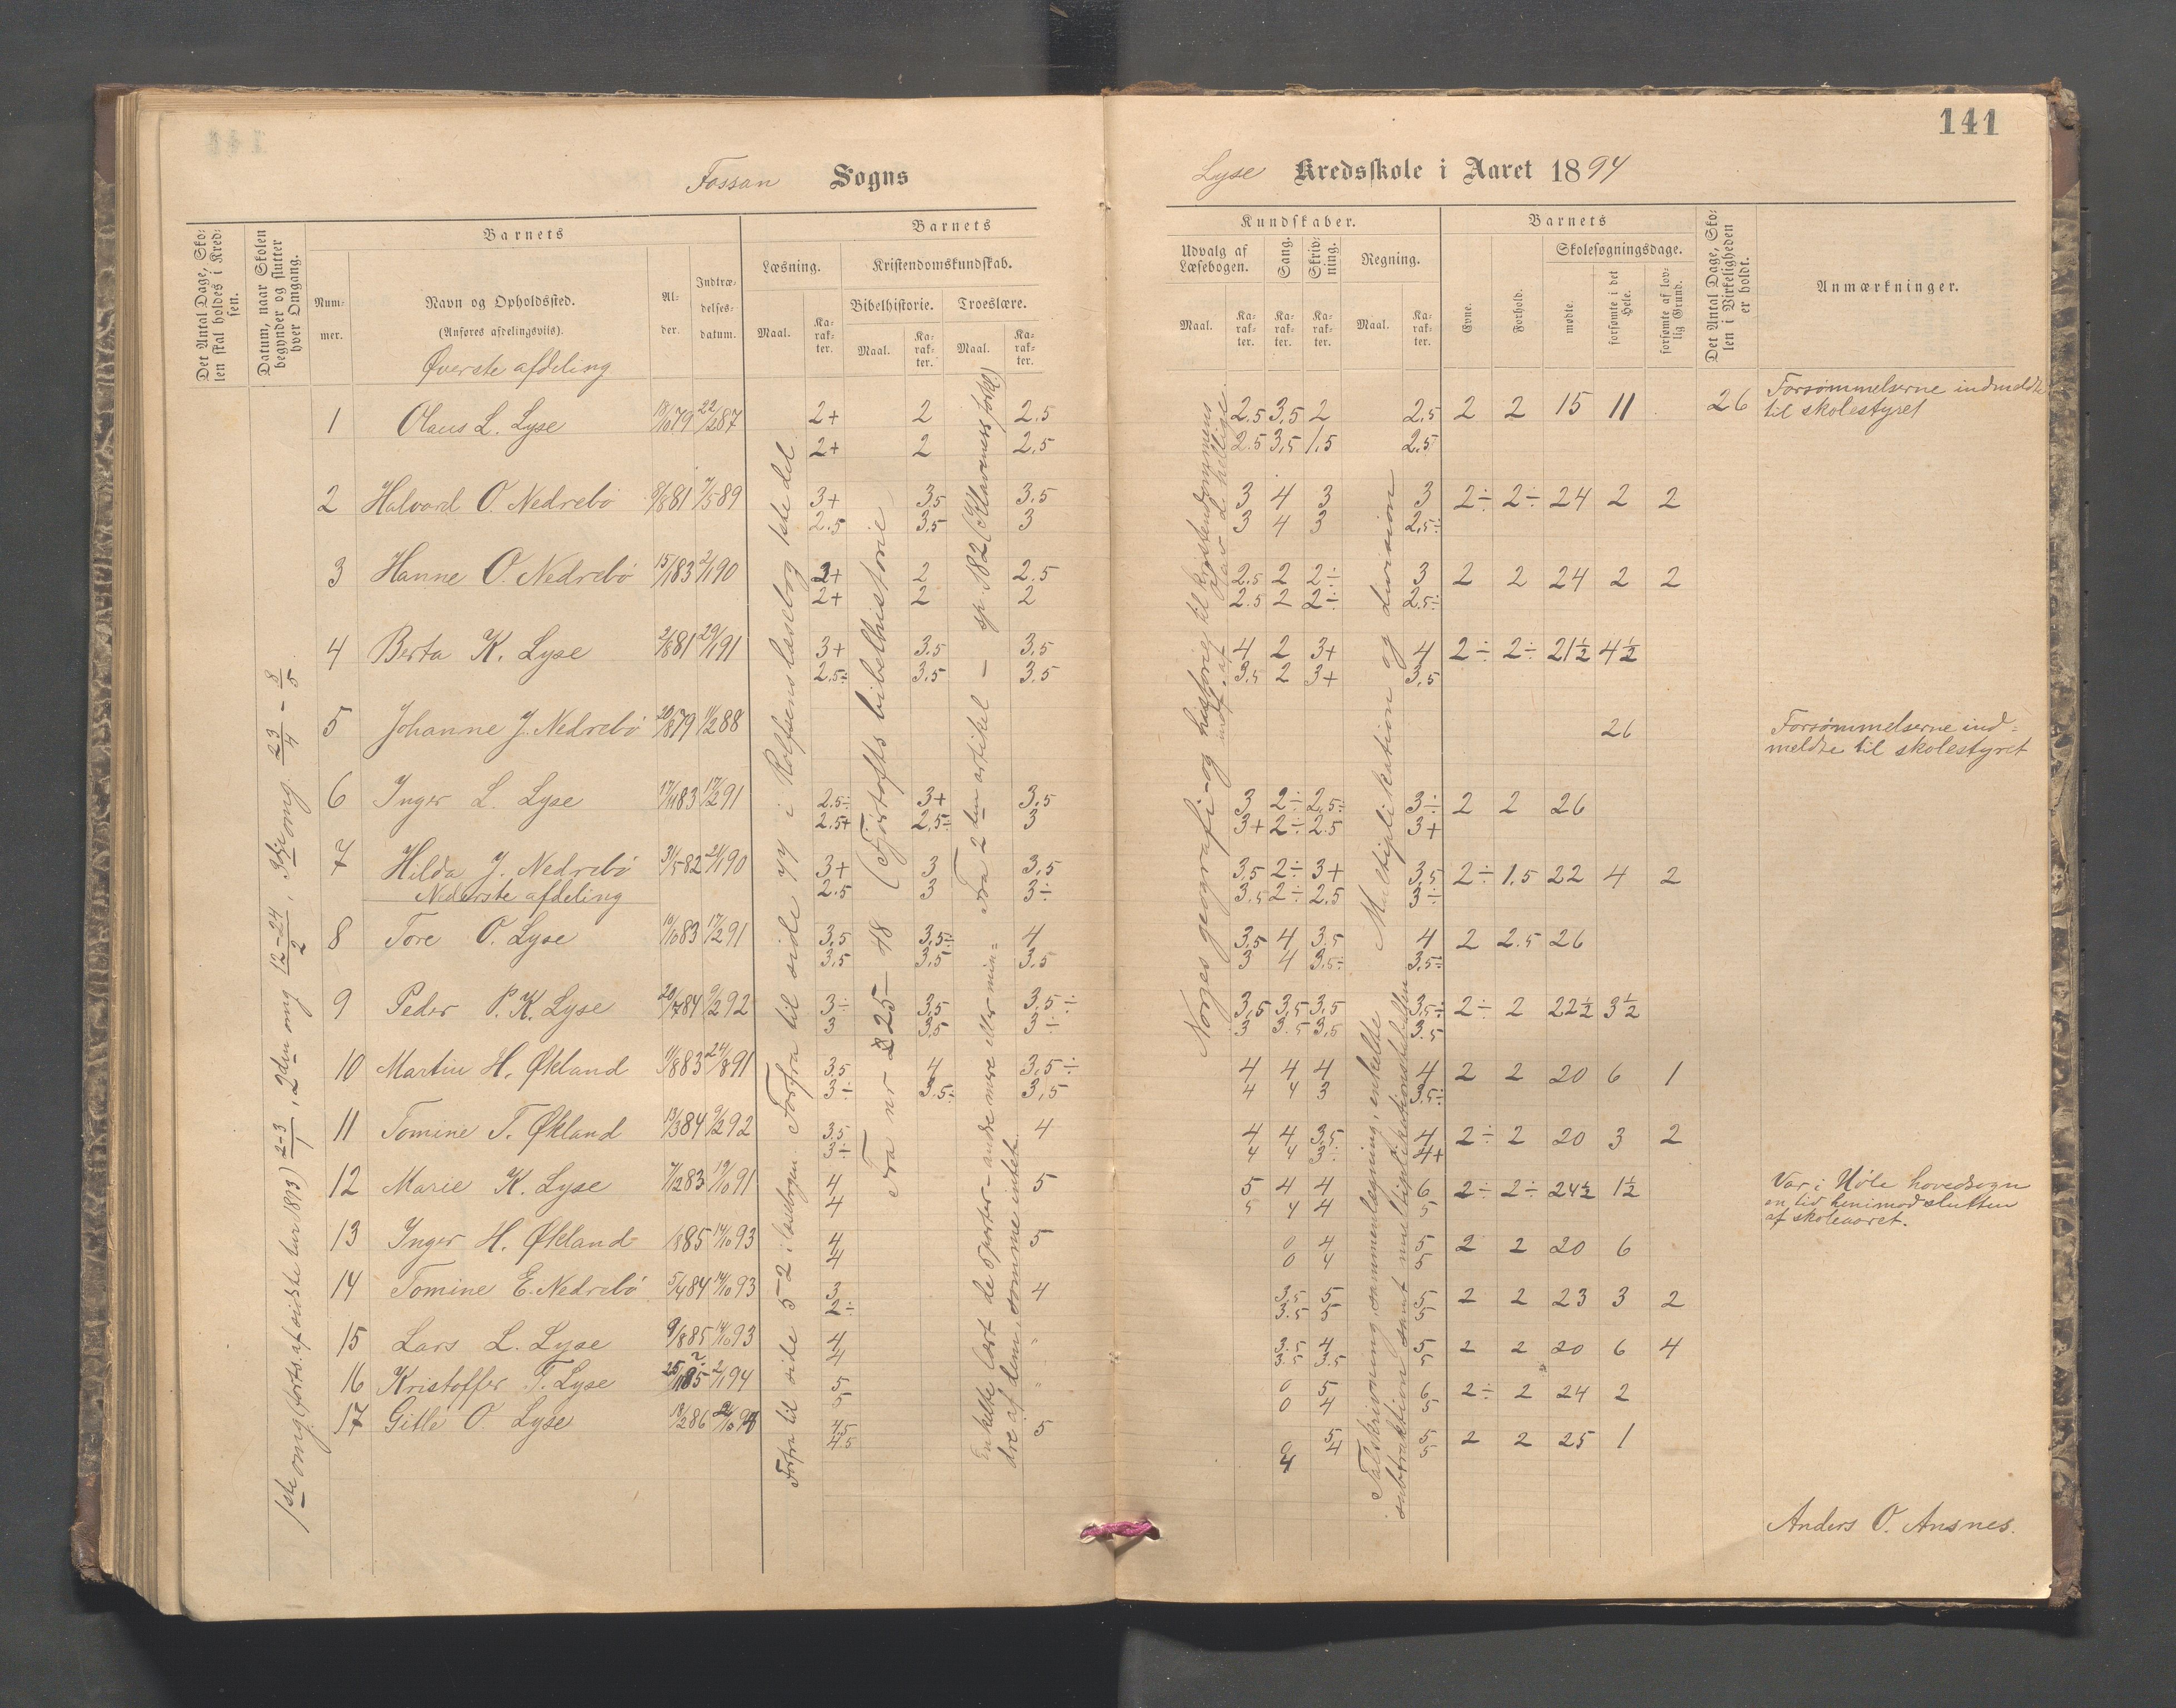 141
Fossan Sogns
Lyse Kredsskole i Aaret 1894
Det Antal Dage, Skolen skal holdes i Kredsen.
Datum, naar Skolen begynder og slutter hver Omgang.
Barnets
Nummer.
Navn og Opholdssted.
(Anføres afdelingsviis).
Alder.
Indtrædelsesdatum.
Barnets
Læsning.
Kristendomskundskab.
Bibelhistorie.
Troeslære.
Maal.
Karakter.
Maal.
Karakter.
Maal.
Karakter.
Kundskaber.
Udvalg af Læsebogen.
Sang.
Skrivning.
Regning.
Maal.
Karakter.
Karakter.
Karakter.
Maal.
Karakter.
Barnets
Evne.
Forhold.
Skolesøgningsdage.
mødte.
forsømte i det Hele.
forsømte af lovlig Grund.
Det Antal Dage, Skolen i Virkeligheden er holdt.
Anmærkninger.
Øverste afdeling
1 Olaus L. Lyse 18/10 79 22/2 87 2+ 2 2.5 2.5 3,5 2 2.5 2 2 15 11 26 Forsømmelserne indmeldte
til skolestyret
2+ 2 2.5 2.5 3,5 1,5 2.5
2 Halvard O. Nedrebö 8/8 81 7/5 89 3+ 3,5 3.5 3 4 3 3 2÷ 2÷ 24 2 2
2.5 3,5 3 3 4 3 2,5÷
3 Hanne O. Nedrebö 15/1 83 2/1 90 2+ 2 2.5 2.5 2 2÷ 3 2 2 24 2 2
2+ 2 2 2.5 2 2÷ 2,5÷
4 Berta K. Lyse 2/8 81 29/1 91 3+ 3.5 3.5 4 2 3+ 4 2÷ 2÷ 21½ 4½
2.5÷ 3.5 3.5 3,5 2 3+ 3,5
5 Johanne J. Nedrebö 20/8 79 11/2 88 26 Forsømmelserne ind=
meldte til skolestyret
6 Inger L. Lyse 17/11 83 17/2 91 2.5÷ 3+ 3,5 3 2÷ 2,5÷ 3÷ 2 2 26
2.5+ 2,5÷ 3 3+ 2÷ 2.5 3+
7 Hilda J. Nedrebö 31/5 82 21/1 90 3+ 3 3,5 3,5 2÷ 3+ 3,5 2÷ 1.5 22 4 2
2.5 3 3÷ 3,5 2÷ 2.5 3÷
Nederste afdeling
8 Tore O. Lyse 10/10 83 17/2 91 3,5 3,5÷ 4 3,5 4 3.5 4 2 2.5 26
3,5 3,5 3.5 3 4 3,5÷ 3,5÷
9 Peder P. K. Lyse 20/7 84 9/2 92 3÷ 3,5 3.5÷ 3,5 3,5 3,5 3,5÷ 2÷ 2 22½ 3½
3 3,5 3÷ 3 3.5 3,5 3.5
10 Martin H. Økland 11/8 83 24/8 91 3.5 4 3,5÷ 4 4 4 4 2 2 20 6 1
3÷ 3.5÷ 3,5 4 4 3 3.5÷
11 Tomine T. Økland 13/3 84 9/2 92 3,5 4 4 4 3,5 4 2÷ 2 20 3 2
3÷ 4 4 3÷ 4+
12 Marie K. Lyse 7/12 83 19/10 91 4 5 5 4 4 6 2÷ 2÷ 24½ 1½ Var i Høle hovedsogn
en tid henimod slutten
af skoleaaret.
4 5 4 4 5
13 Inger H. Økland 1/8 85 14/10 93 4 5 0 4 5 2 2 20 6
4 0 4 5
14 Tomine E. Nedrebö 5/4 84 14/10 93 3 4 3,5 5 5 2 2 23 3 2
2÷ 3.5 5 5
15 Lars L. Lyse 9/8 85 14/10 93 4 " 3.5 4 5 2 2 20 6 4
4 3.5 3.5 5
16 Kristoffer T. Lyse 2/1 94 5 " 0 5 6 2÷ 2 24 2
5 0 4 5
17 Gitle O. Lyse 18/2 86 4,5 5 5 5 2 2 25 1
4.5 4 4 5
1ste omg (forts. af sidste tur 1893) 2–3/1, 2den omg 12–24/2, 3dje omg. 23/4 – 8/5.
Forfra til side 52 i læsebogen Forfra til side 77 i Rolfsens læsebog 1ste del.
Fra nr 225– 48 (Fjörtofts bibelhistorie
Fra 2den artikel – sp. 182 (Klaveness forkl.)
Enkelte lært de sporter – andre mere eller min=
dre af dem, somme intet.
Norges geografi – og historie til kristendommens
indf. af Olav d. hellige.
Multiplikation og division
Talskrivning, sammenlægning, enkelte
subtraktion samt multiplikationstabellen
Anders O. Ansnes.